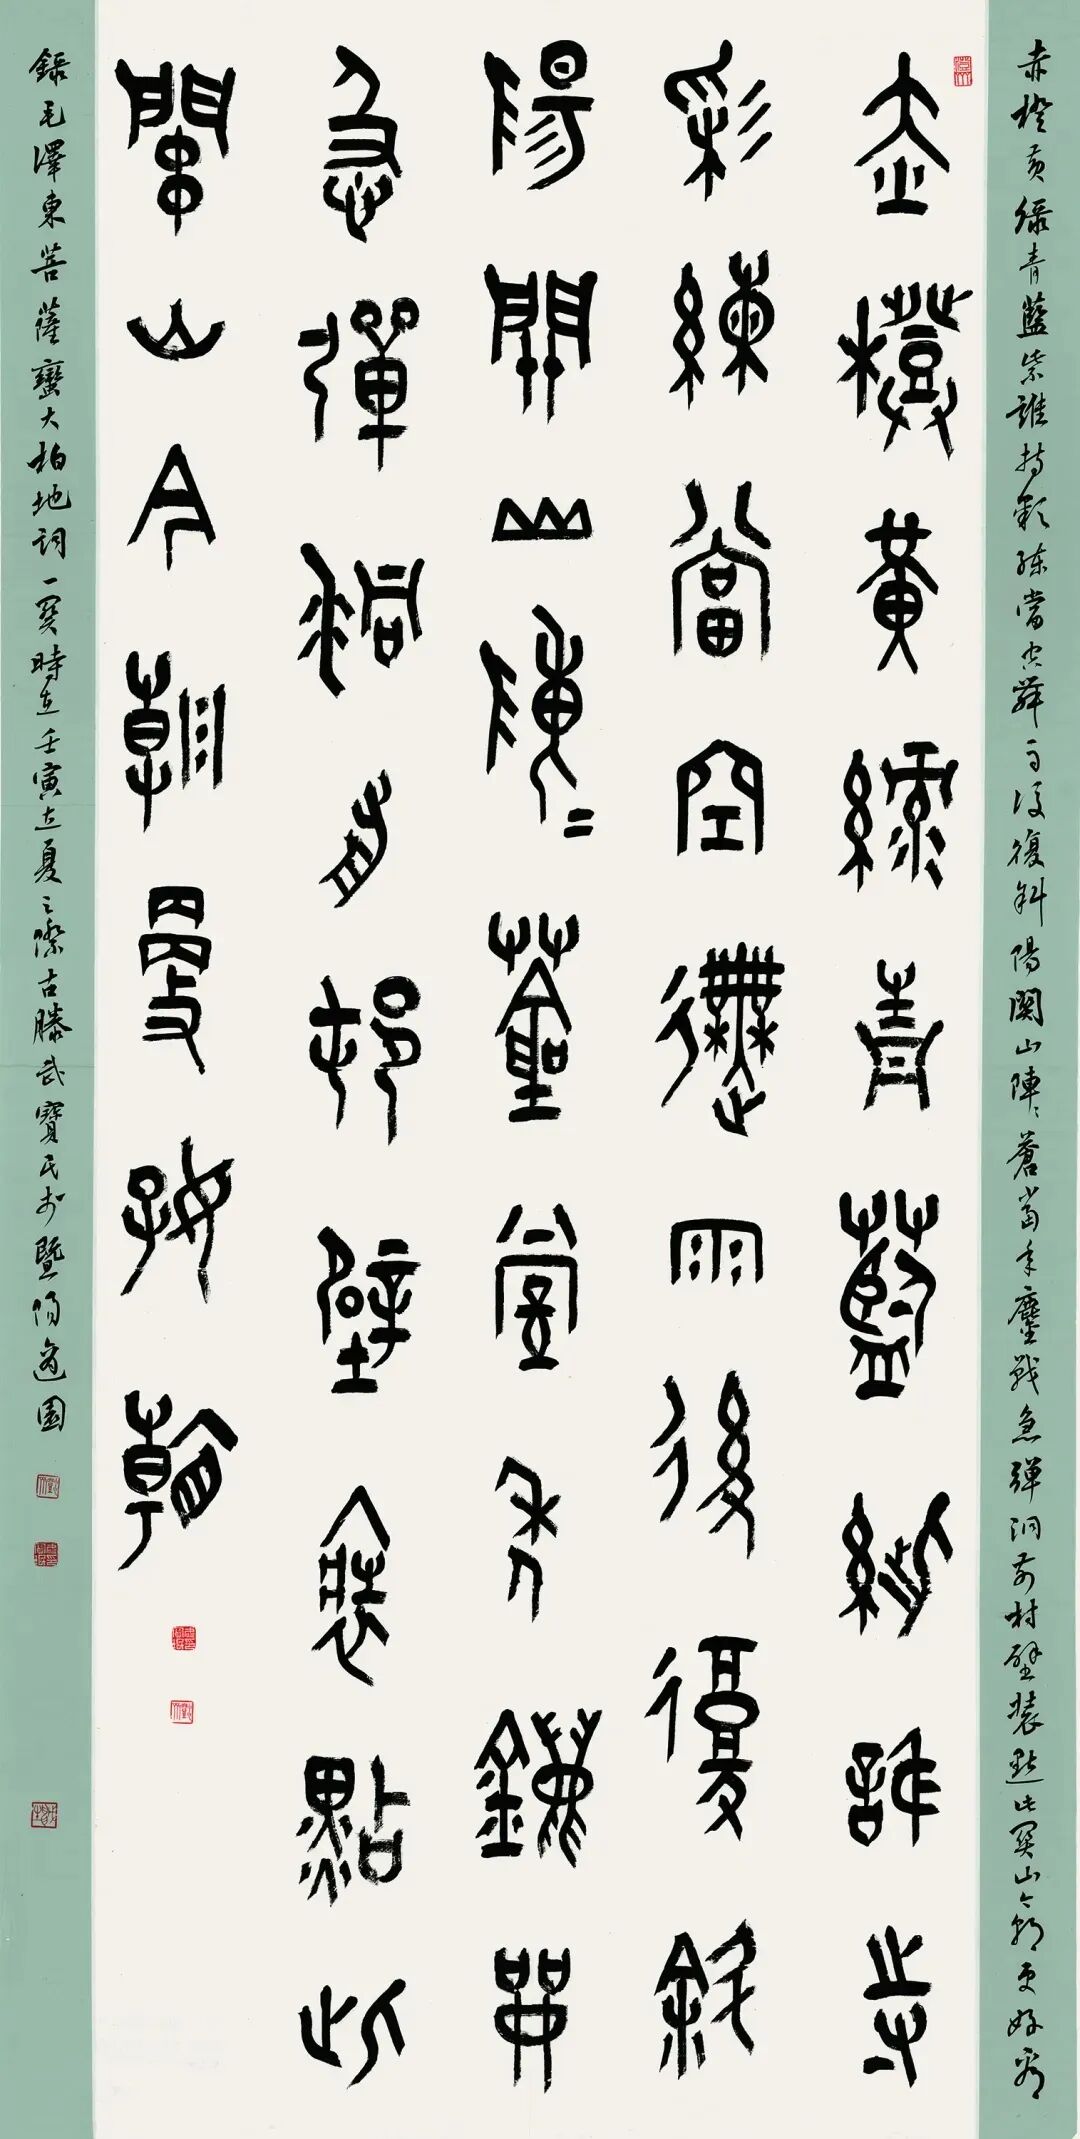 赤橙黃綠青藍紫誰持彩練當空舞雨後復斜陽關山陣〻蒼當年鏖戰急彈洞前村壁裝點此關山今朝更好看
赤橙黃綠青藍紫誰持
彩練當空舞雨後復斜
陽關山陣〻蒼當年鏖戰
急彈洞前村壁裝點此
關山今朝更好看
錄毛澤東菩薩蠻大柏地詞一闋時在壬寅立夏之際古滕武寶民於暨陽逸園